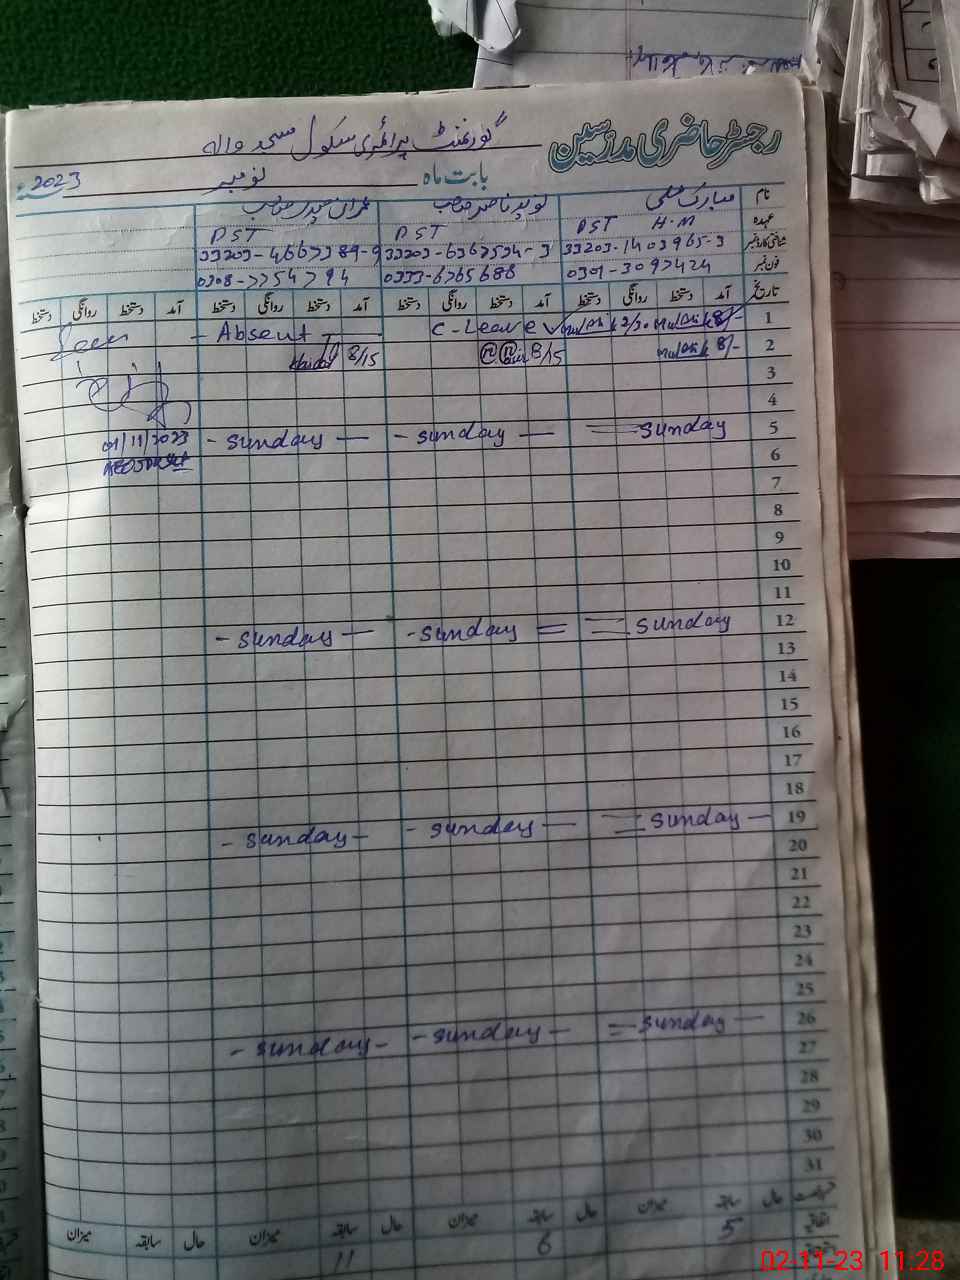 رجسٹر حاضری مدرسین
گورنمنٹ پرائمری سکول مسجد والہ
بابت ماہ نومبر 2023
نام مبارک علی نوید ناصر صاحب عمران حیدر صاحب
عہدہ PST H.M PST PST
شناختی کارڈ نمبر 33203-1403965-3 33203-6367534-3 33203-4667389-9
فون نمبر 0301-3097424 0333-6765688 0308-7754794
تاریخ آمد دستخط روانگی دستخط آمد دستخط روانگی دستخط آمد دستخط روانگی دستخط آمد دستخط روانگی دستخط
1 8/- 2/30 C-Leave - Absent -
2 8/- 8/15 Khidar 8/15
3
4
5 Sunday - Sunday - - Sunday - 01/11/2023
6
7
8
9
10
11
12 Sunday - Sunday - Sunday -
13
14
15
16
17
18
19 Sunday - - Sunday - - Sunday -
20
21
22
23
24
25
26 Sunday - - Sunday - - Sunday -
27
28
29
30
31
حال سابقہ میزان حال سابقہ میزان حال سابقہ میزان حال سابقہ میزان
5 6 11
02-11-23 11:28